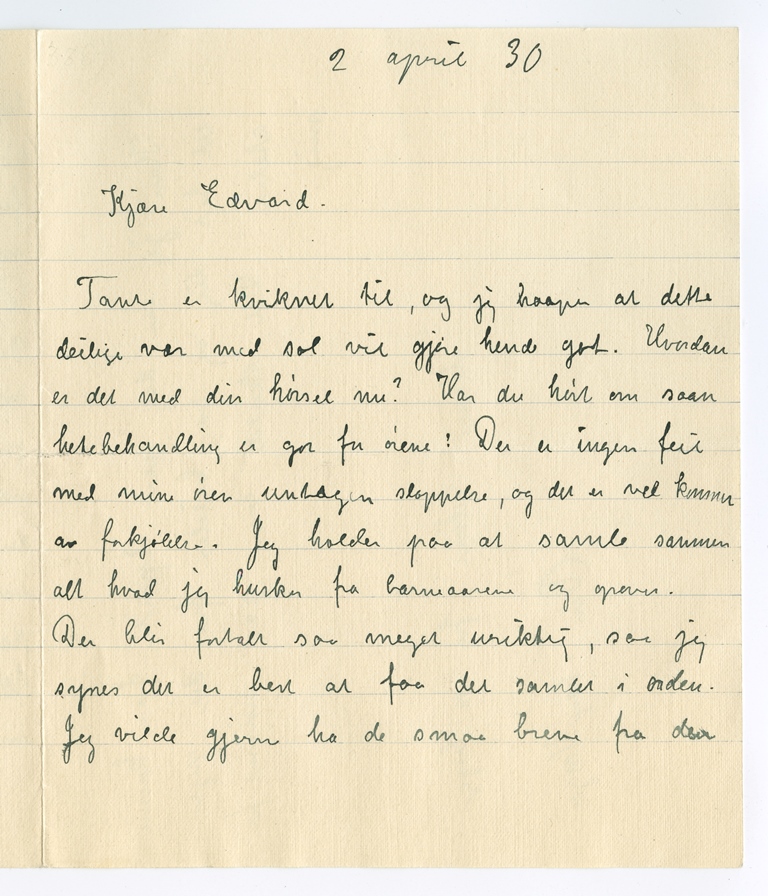 2 april 30
Kjære Edvard.
Tante er kviknet til, og jeg haaper at dette
deilige vær med sol vil gjøre hende godt. Hvordan
er det med din hørsel nu? Har du hørt om saan
hetebehandling er god for ørene! Der er ingen feil
med mine øren undtagen stoppelse, og det er vel kommen
av forkjølelse. Jeg holder paa at samle sammen
alt hvad jeg husker fra barneaarene og
Der blir fortalt saa meget uriktig, saa jeg
synes det er best at faa det samlet i orden.
Jeg vilde gjerne ha de smaa breve fra